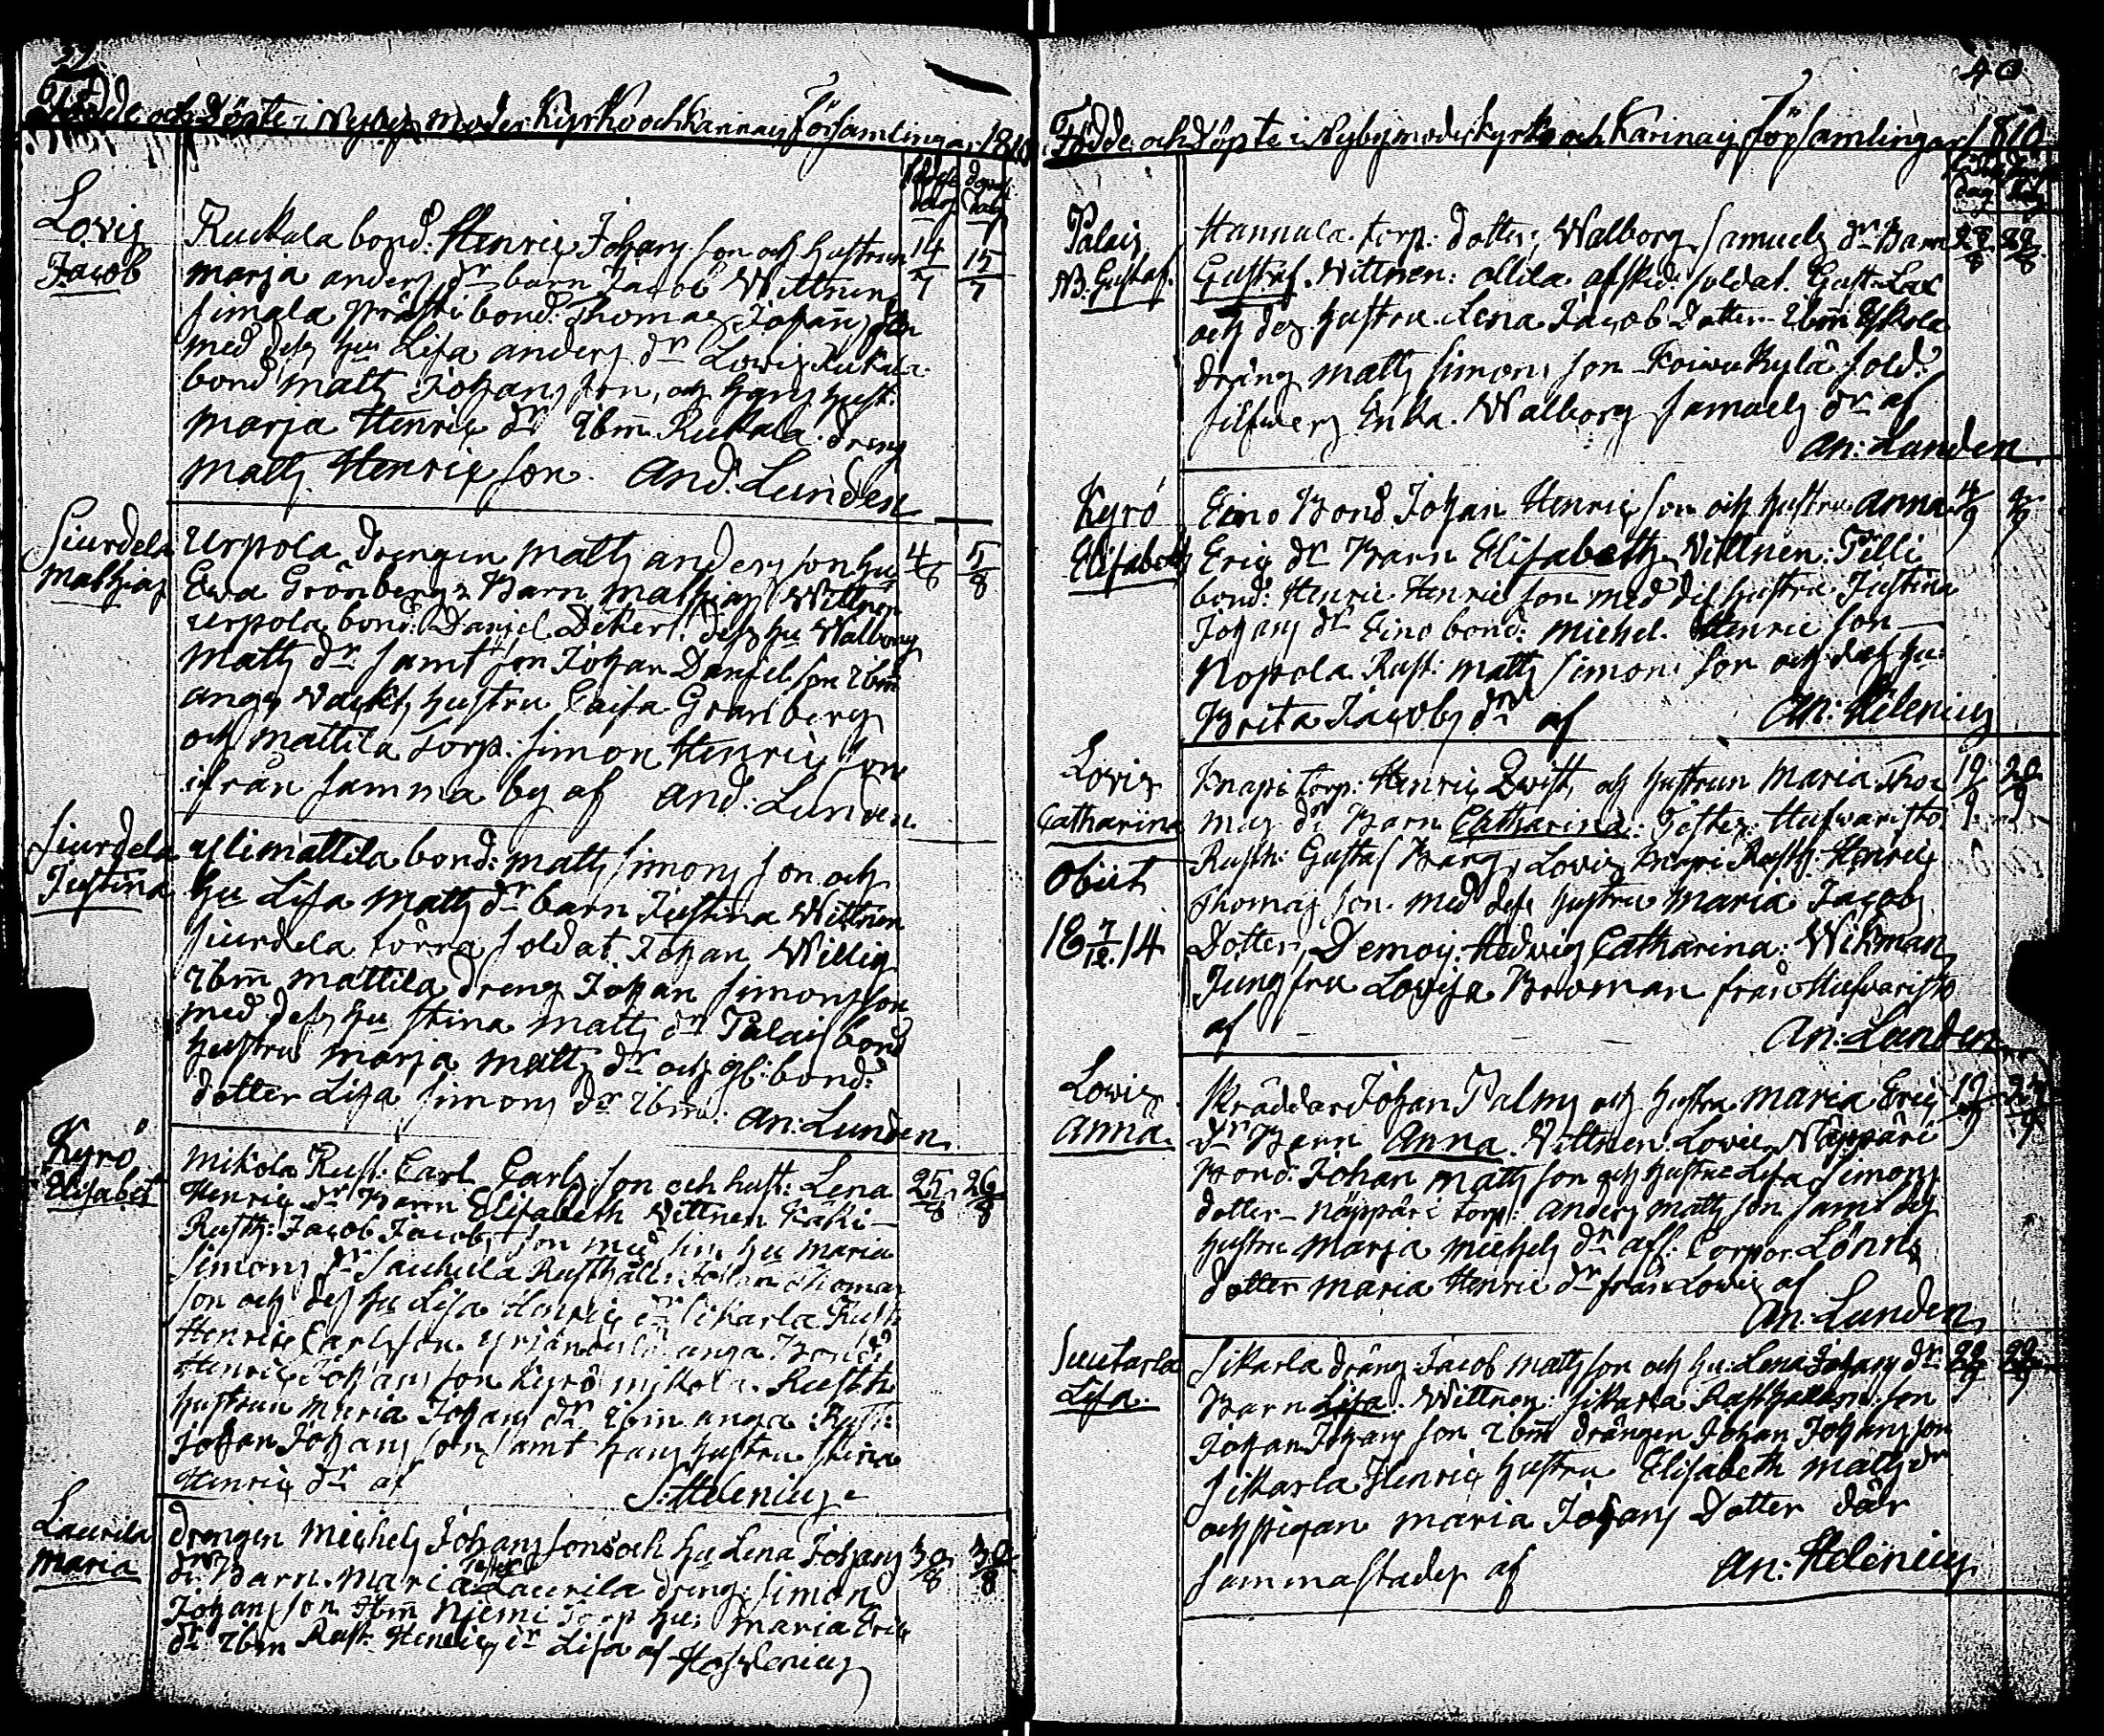 Födde och Döpte i Nyby moder Kyrko och Karinais församlingar 1810
födelse dag
döpelse dag
Lovis
Jacob
Ruskala bond: Henric Johans son och hustrun 14/7 15/7
Marja anders dr barn Jacob Wittnen
Simala Prästi bond: Thomas Johans son
med dess hu Lisa anders dr Lovis Ruskala
bond matts Johans son, och hans hust:
Marja Henrics dr ibm Ruskala dreng
Matts Henrics son. And. Lunden
Siurdela
Mathias
Urpola drengen matts anders son hu 4/8 5/8
Ewa Grönbergs Barn mathias Wittnen
urpola bond: Daniel Dekert dess hu Walborg
Matts dr samt son Johan Daniels son ibm
ange hustru Caisa Granberg
och mattila Torp: Simon Henrics son
ifrån samma by af And: Lunden
Siurdela
Justina
ylimattila bond: matts simons son och
hu Lisa matts dr barn Justina Wittnen
Siurdela förra soldat Johan Willig
ibm mattila dreng Johan simons son
med dess hu stina matts dr Palais bond
hustru marja matts dr och gl: bond:
dotter Lisa simons dr ibm: an: Lunden
Kyrö
Elisabet
Mikola Rust: Carl Carls son och hust: Lena 25/8 26/8
Henrics dr Barn Elisabeth Wittnen Käki-
Rusth: Jacob Jacobs son med sin hu maria
Simons dr Sauhula Rusthåll: Johan Thomas
son och dess hu Lisa Henrics dr Sikarla Rust
Henric Carlsson. yrjändylä anga Bond:
Henric Johans son Kyrö mikola. Rusth
hustrun Maria Johans dr ibm anga Rust:
Johan Johans son, samt hans hustru stina
Henrics dr af S: Helenius
Laurila
Maria
drengen Michels Johans son och hu Lena Johans 30/8 30/8
dr Barn. Maria Test: Laurila dreng: simon
Johans son ibm Niemi Torp hu: Maria Erics
dr ibm Rust: Henrics dr Lisa af Helenius
40
Födde och Döpte i Nyby moderkyrko och Karinais församlingar 1810
Palais
NB. Gustaf.
Hannula torp: dotter, Walborg Samuels dr Barn 28/8 29/8
Gustaf. Wittnen: Ollila afsked: soldat. Gust: Lax
och des hustru Lena Jacobs Dotter ibm Yskola
dräng matts simons son Koivukylä sold:
Silfwers Enka. Walborg samuels dr af
an: Lunden
Kyrö
Elisabeth
Eino Bond Johan Henrics son och hustru Anna 4/9
Erics dr Barn Elisabeth Wittnen: Pilli
bond: Henric Henrics son med dess hustru Justina
Johans dr Eino bond: michel Henrics son
Nopola Rust: matts simons son och dess hu:
Brita Jacobs dr af an: Helenius
Lovis
Catharina
Obiit
18 7/12 14
Knapi torp: Henric Qvist, och hustrun Maria Tho 19/9 20/9
mas dr Barn Catharina: Testes. Hufwaristo
Rusth: Gustaf Berg, Lovis Knapi Rusth: Henric
Thomas son med dess hustru maria Jacobs
Dotter, Demois: Hedwig Catharina: Wikman
Jungfru Lovisa Broman från Hufvaristo
af an: Lunden
Lovis
Anna.
Skräddar Johan Palms och hustru maria Erics 19/9 23/9
dr Barn Anna. Wittnen: Lovis Näppäri
Bond: Johan matts son och hustru Lisa Simons
dotter näppäri torp: anders matts son samt des
hustru marja michels dr afl: Corpor Lönns
dotter maria Henrics dr från Lovis af
an: Lunden
Suutarla
Lisa.
Sikarla dräng Jacob matts son och hu: Lena Johans dr
Barn Lisa. Wittnen: Sikarla Rusthållare son
Johan Johans son ibm drängen Johan Johans son
Sikarla Henrics hustru Elisabeth matts dr
och pigan maria Johans Dotter där
sammastades af an: Helenius